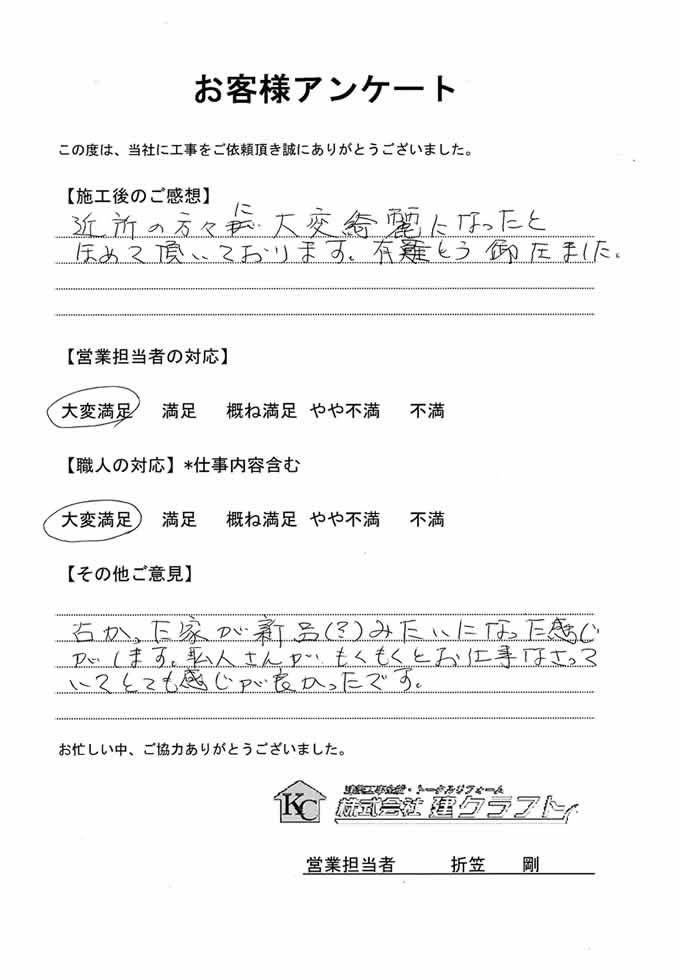 お客様アンケート
この度は、当社に工事をご依頼頂き誠にありがとうございました。
【施工後のご感想】
近所の方々に大変綺麗になったと
ほめて頂いております。有難とう御座ました。
【営業担当者の対応】
大変満足 満足 概ね満足 やや不満 不満
【職人の対応】*仕事内容含む
大変満足 満足 概ね満足 やや不満 不満
【その他ご意見】
古かった家が新品(?)みたいになった感じ
がします。職人さんが、もくもくとお仕事なさって
いてとても感じが良かったです。
お忙しい中、ご協力ありがとうございました。
KC
株式会社 建クラフト
営業担当者 折笠 剛